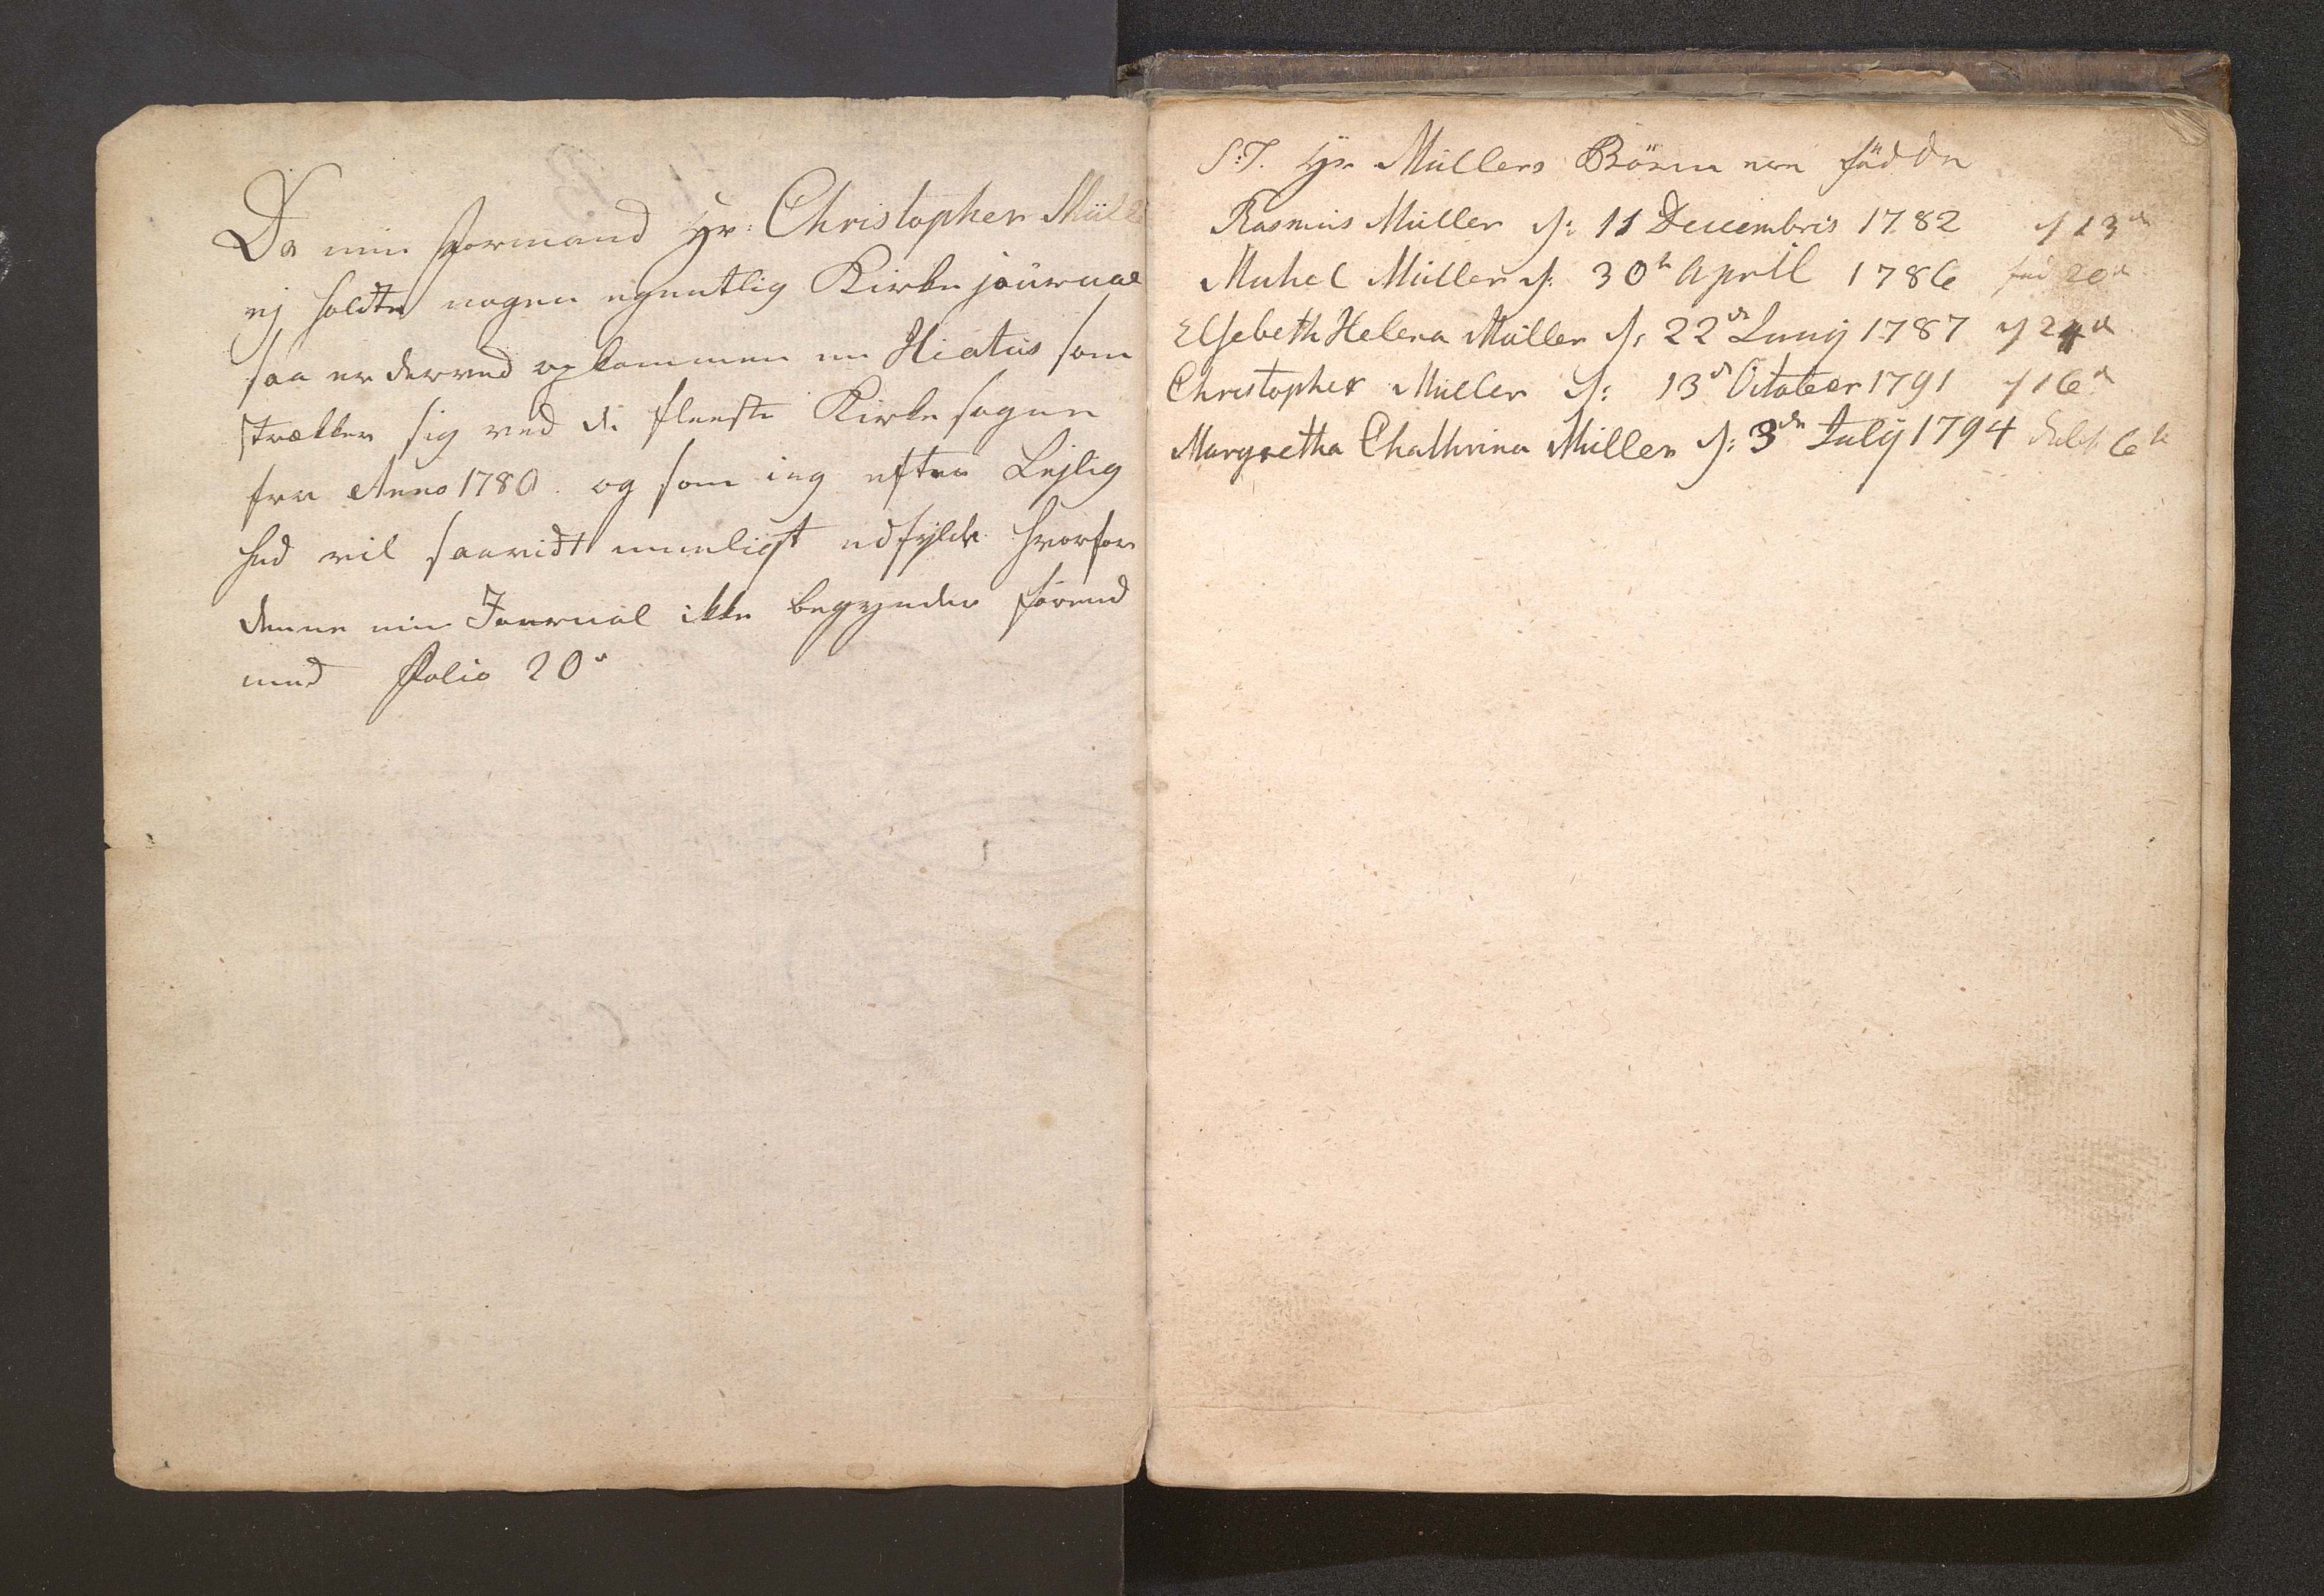 Da min Formand Hr: Christopher Müll
ej holdte nogen egentlig Kirke journal
saa er derved opkommen en Hiatus som
strækker sig ved de fleeste Kirke sogne
fra Anno 1780. og som ieg efter Lejlig
hed vil saavidt mueligt udfylde hvorfor
denne min Journal ikke begynder förend
med Folio 20
S:T. Hr Müllers Börn ere födde
Rasmus Müller d: 11 Decembris 1782 13de
Michel Müller d: 30te April 1786 20de
Elsebeth Helena Müller d: 22de Junij 1787 24de
Christopher Müller d: 13de October 1791 16de
Margretha Chathrina Müller d: 3de Julij 1794 6te